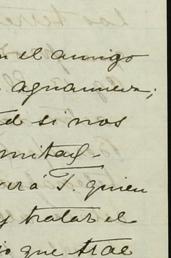 n el amigo
agnamera;
td si nos
mitad-
ará T. quien
y tratar el
io que trae